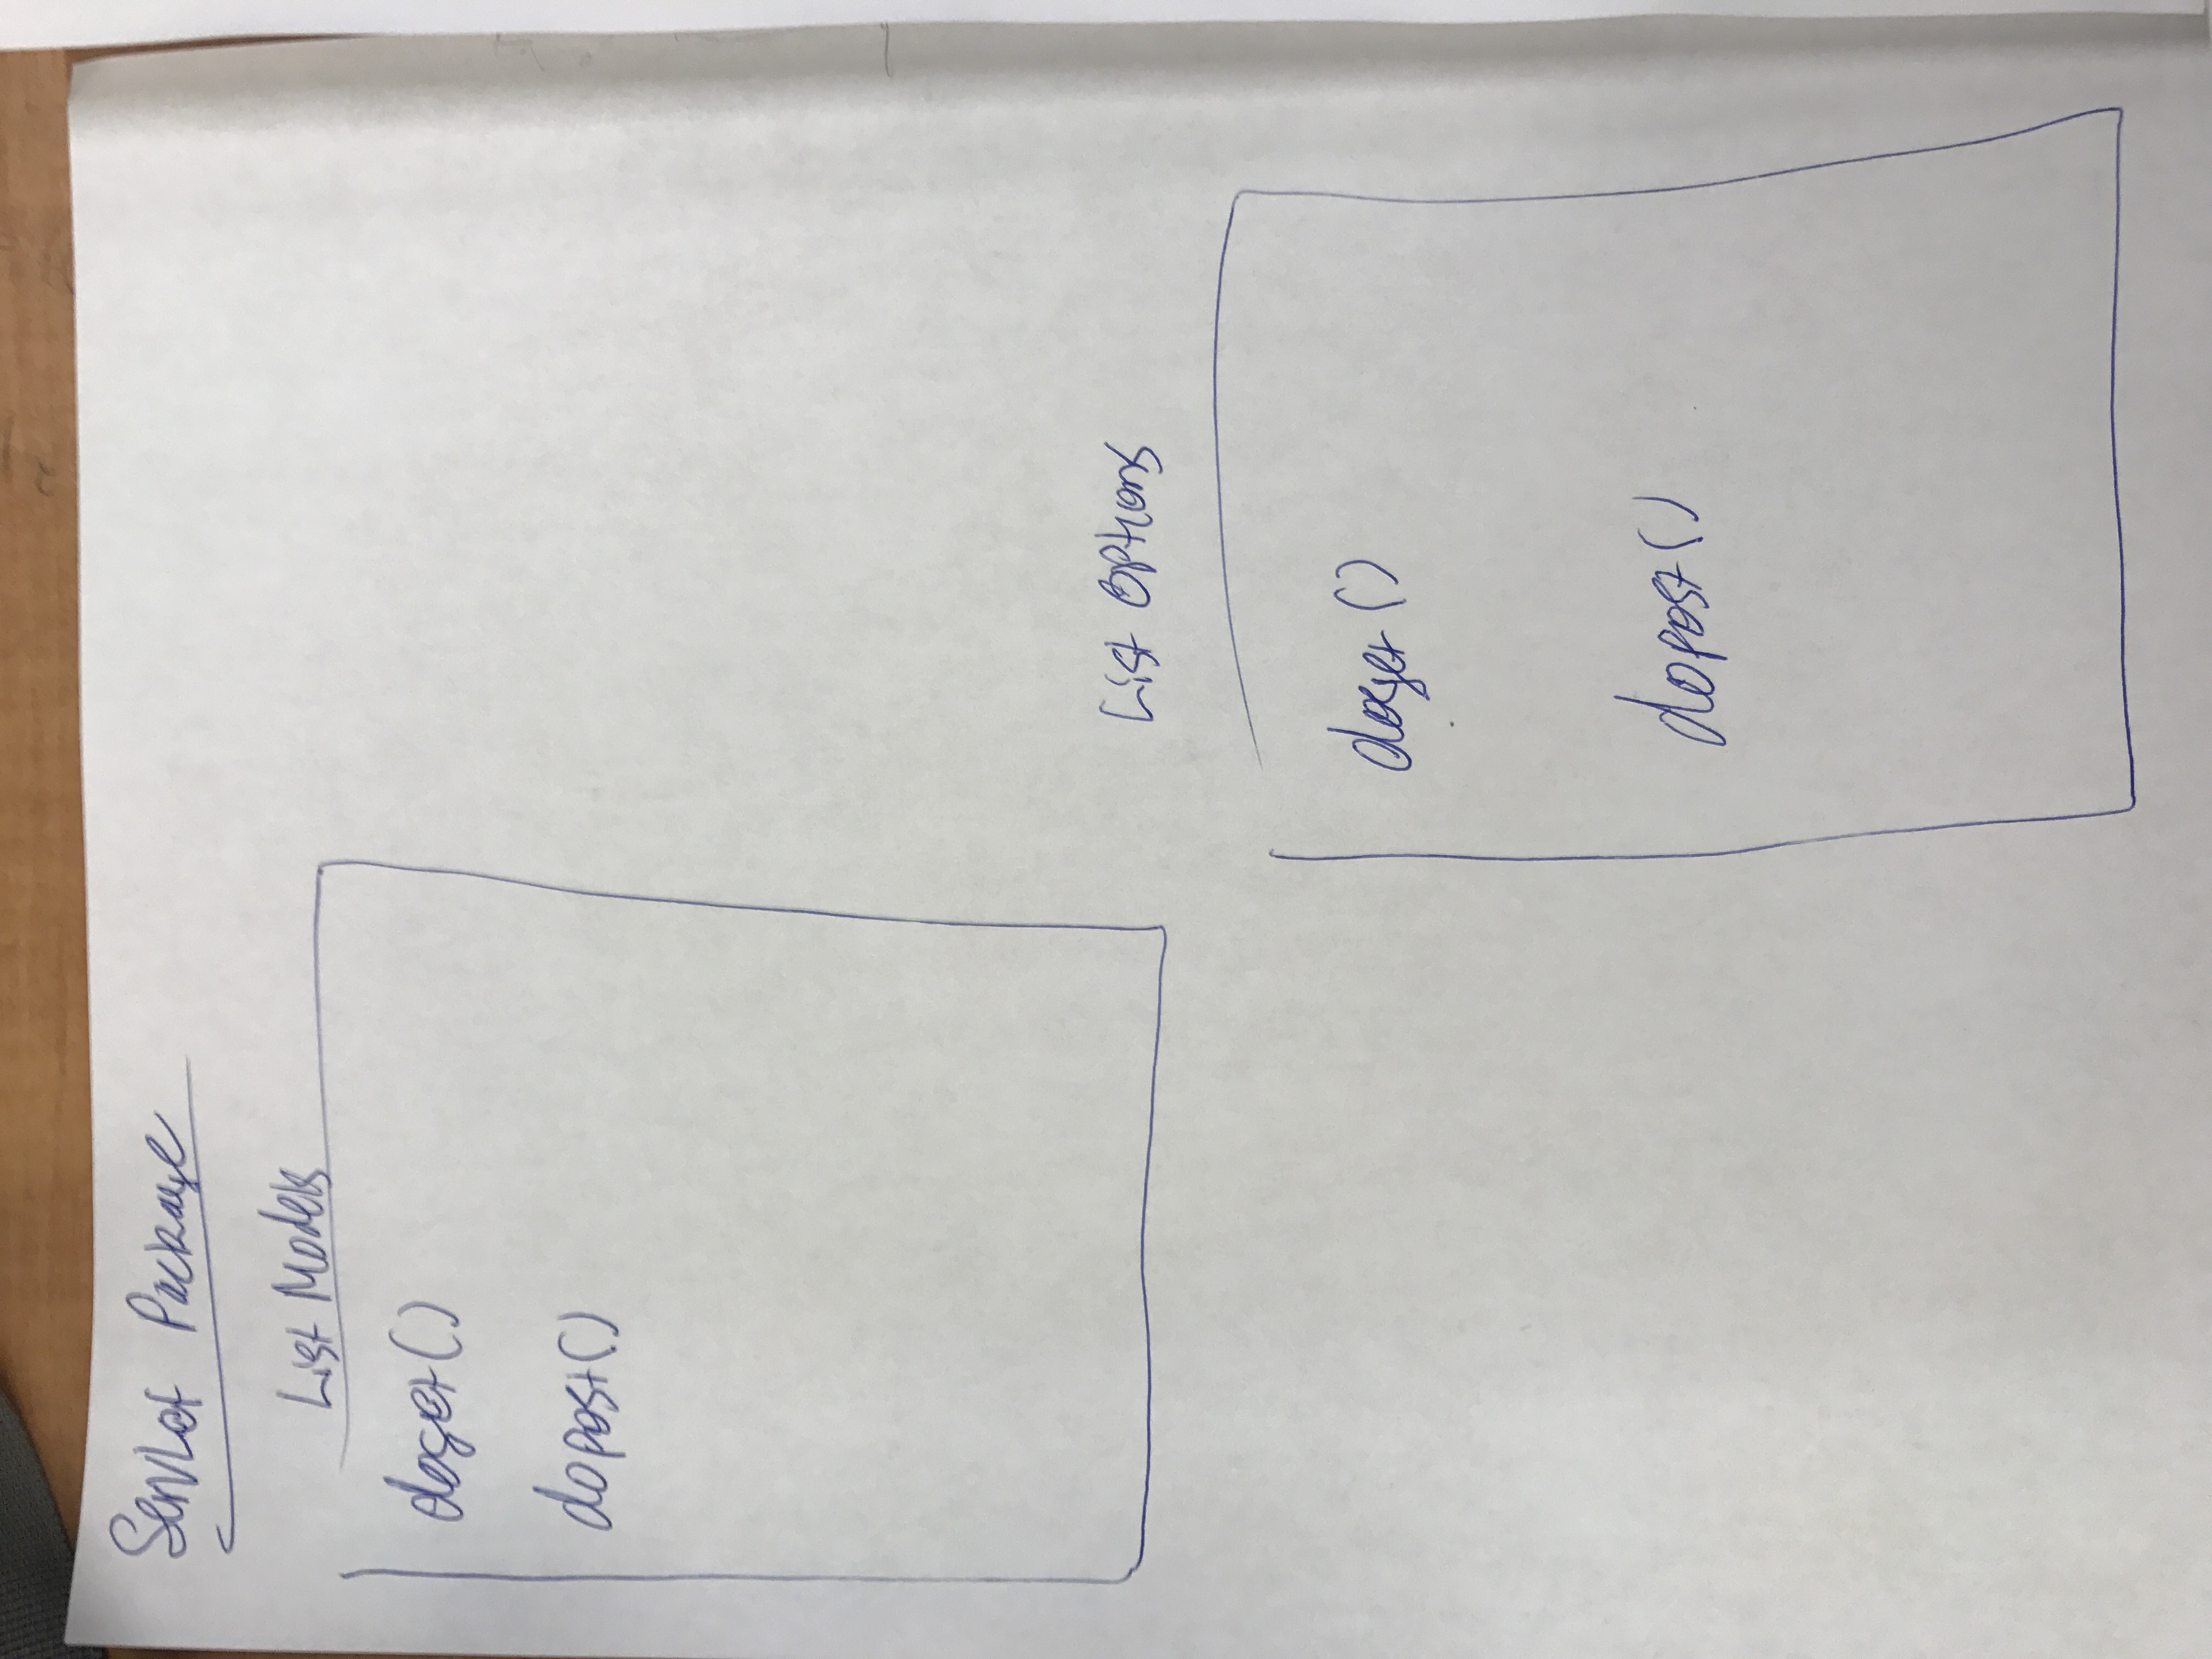 Servlet Package
List Models
doget()
dopost()
List Options
doget()
dopost()